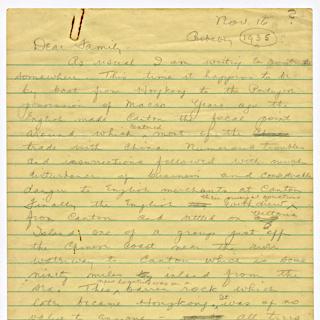 Nov. 16 ?
1935
Dear Family-
As usual I am writing
somewhere. This time it happens to be
by boat from Hongkong to the Portugese
possession of Macao. Years ago the
English made Canton the focal point
around which most of the
trade with China. Numerous troubles
and insurrections followed with much
disturbance of business and considerable
danger to English merchants at Canton
Finally the English withdrew
from Canton and settled on Victoria
Island, one of a group just off
the Chinese coast near the river
waterway to Canton which is some
ninety miles inland from the
sea. The barren rock which
later became Hongkong, was of no
value to anyone - all trees